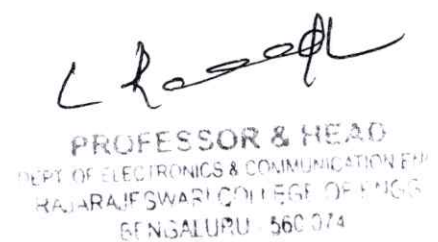 PROFESSOR & HEAD
DEPT OF ELECTRONICS & COMMUNICATION EN
RAJARAJESWARI COLLEGE OF ENGG
BENGALURU - 560 074